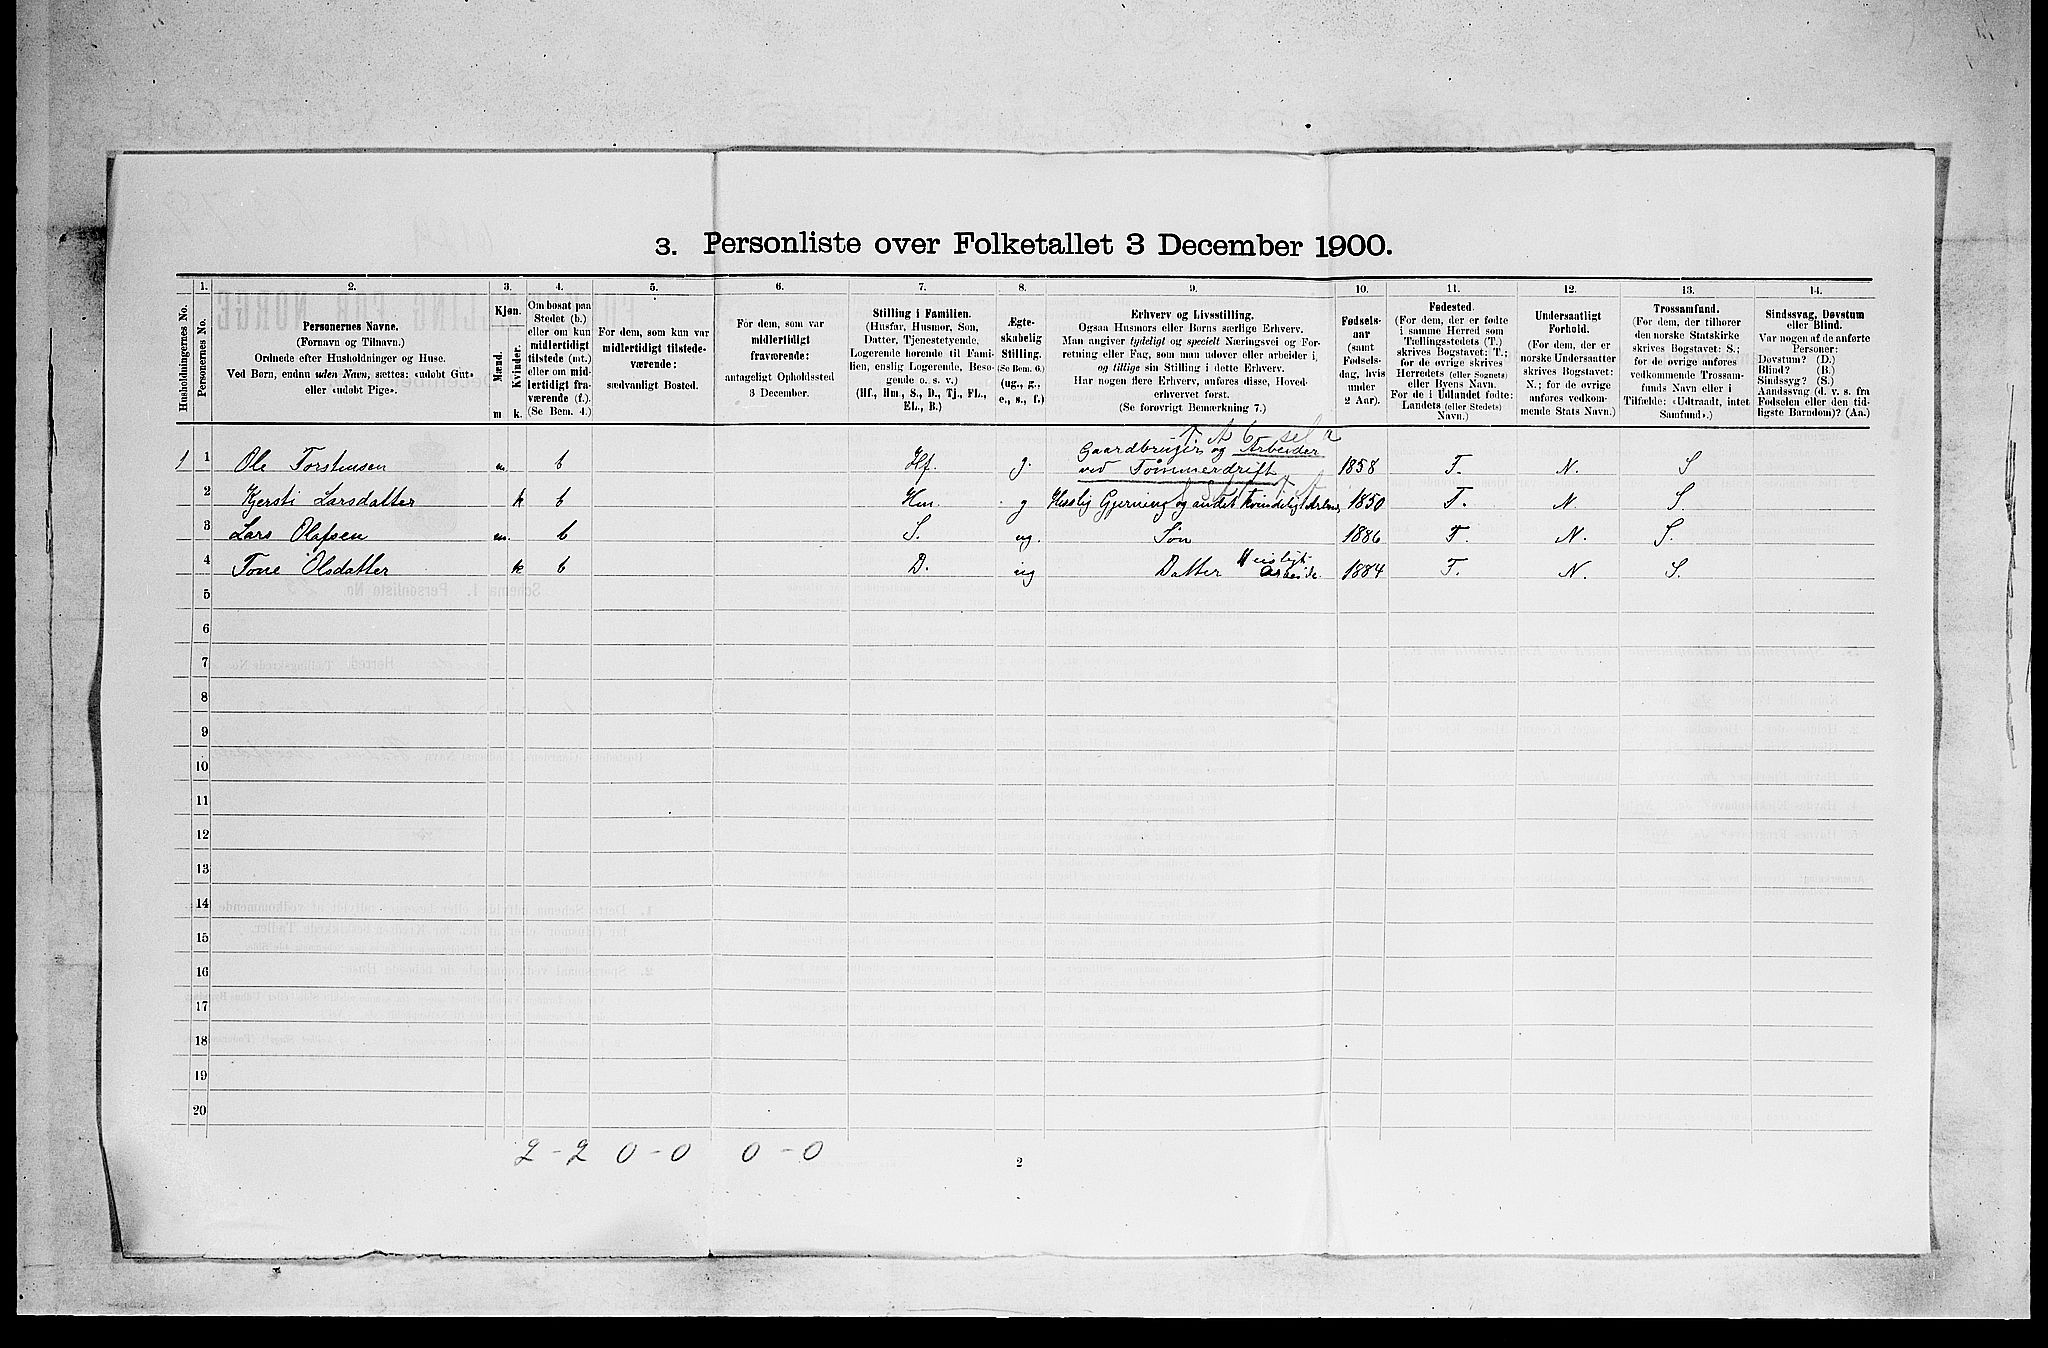 3. Personliste over Folketallet 3 December 1900.
Husholdningernes No.
1.
Personernes No.
2.
Personernes Navne.
(Fornavn og Tilnavn.)
Ordnede efter Husholdninger og Huse.
Ved Børn, endnu uden Navn, sættes: «udøbt Gut»
eller «udøbt Pige».
3.
Kjøn.
Mænd.
Kvinder.
m k.
4.
Om bosat paa
Stedet (b.)
eller om kun
midlertidigt
tilstede (mt.)
eller om mid-
lertidigt fra-
værende (f.).
(Se Bem. 4.)
5.
For dem, som kun var
midlertidigt tilstede-
værende:
sædvanligt Bosted.
6.
For dem, som var
midlertidigt
fraværende:
antageligt Opholdssted
3 December.
7.
Stilling i Familien.
(Husfar, Husmor, Søn,
Datter, Tjenestetyende,
Logerende hørende til Fami-
lien, enslig Logerende, Besø-
gende o. s. v.)
(Hf., Hm., S., D., Tj., FL.,
EL., B.)
8.
Ægte-
skabelig
Stilling.
(Se Bem. 6.)
(ug., g.,
e., s., f.)
9.
Erhverv og Livsstilling.
Ogsaa Husmors eller Børns særlige Erhverv.
Man angiver tydeligt og specielt Næringsvei og For-
retning eller Fag, som man udøver eller arbeider i,
og tillige sin Stilling i dette Erhverv.
Har nogen flere Erhverv, anføres disse, Hoved-
erhvervet først.
(Se forøvrigt Bemærkning 7.)
10.
Fødsels-
aar
(samt
Fødsels-
dag, hvis
under
2 Aar).
11.
Fødested.
(For dem, der er fødte
i samme Herred som
Tællingsstedets (T.)
skrives Bogstavet: T.;
for de øvrige skrives
Herredets (eller Sognets)
eller Byens Navn.
For de i Udlandet fødte:
Landets (eller Stedets)
Navn.)
12.
Undersaatligt
Forhold.
(For dem, der er
norske Undersaatter
skrives Bogstavet:
N.; for de øvrige
anføres vedkom-
mende Stats Navn.)
13.
Trossamfund.
(For dem, der tilhører
den norske Statskirke
skrives Bogstavet: S.;
for de øvrige anføres
vedkommende Trossam-
funds Navn eller i
Tilfælde: «Udtraadt, intet
Samfund».)
14.
Sindssvag, Døvstum
eller Blind.
Var nogen af de anførte
Personer:
Døvstum? (D.)
Blind? (B.)
Sindssyg? (S.)
Aandssvag (d. v. s. fra
Fødselen eller den tid-
ligste Barndom)? (Aa.)
1 1 Ole Torstensen m. b Hf. g. Gaardbruger og Arbeider ved Tømmerdrift 1858 T. N. S
2 Kjersti Larsdatter k b Hm. g Huslig Gjerning og andet kvindeligt 1850 T. N. S.
3 Lars Olafsen m. b S. ug. Søn 1886 T. N. S.
4 Tone Olsdatter k b D. ug Datter Huisligt Arbeide. 1884 T. N. S.
5
6
7
8
9
10
11
12
13
14
15
16
17
18
19
20
2 - 2 0 - 0 0 - 0
2